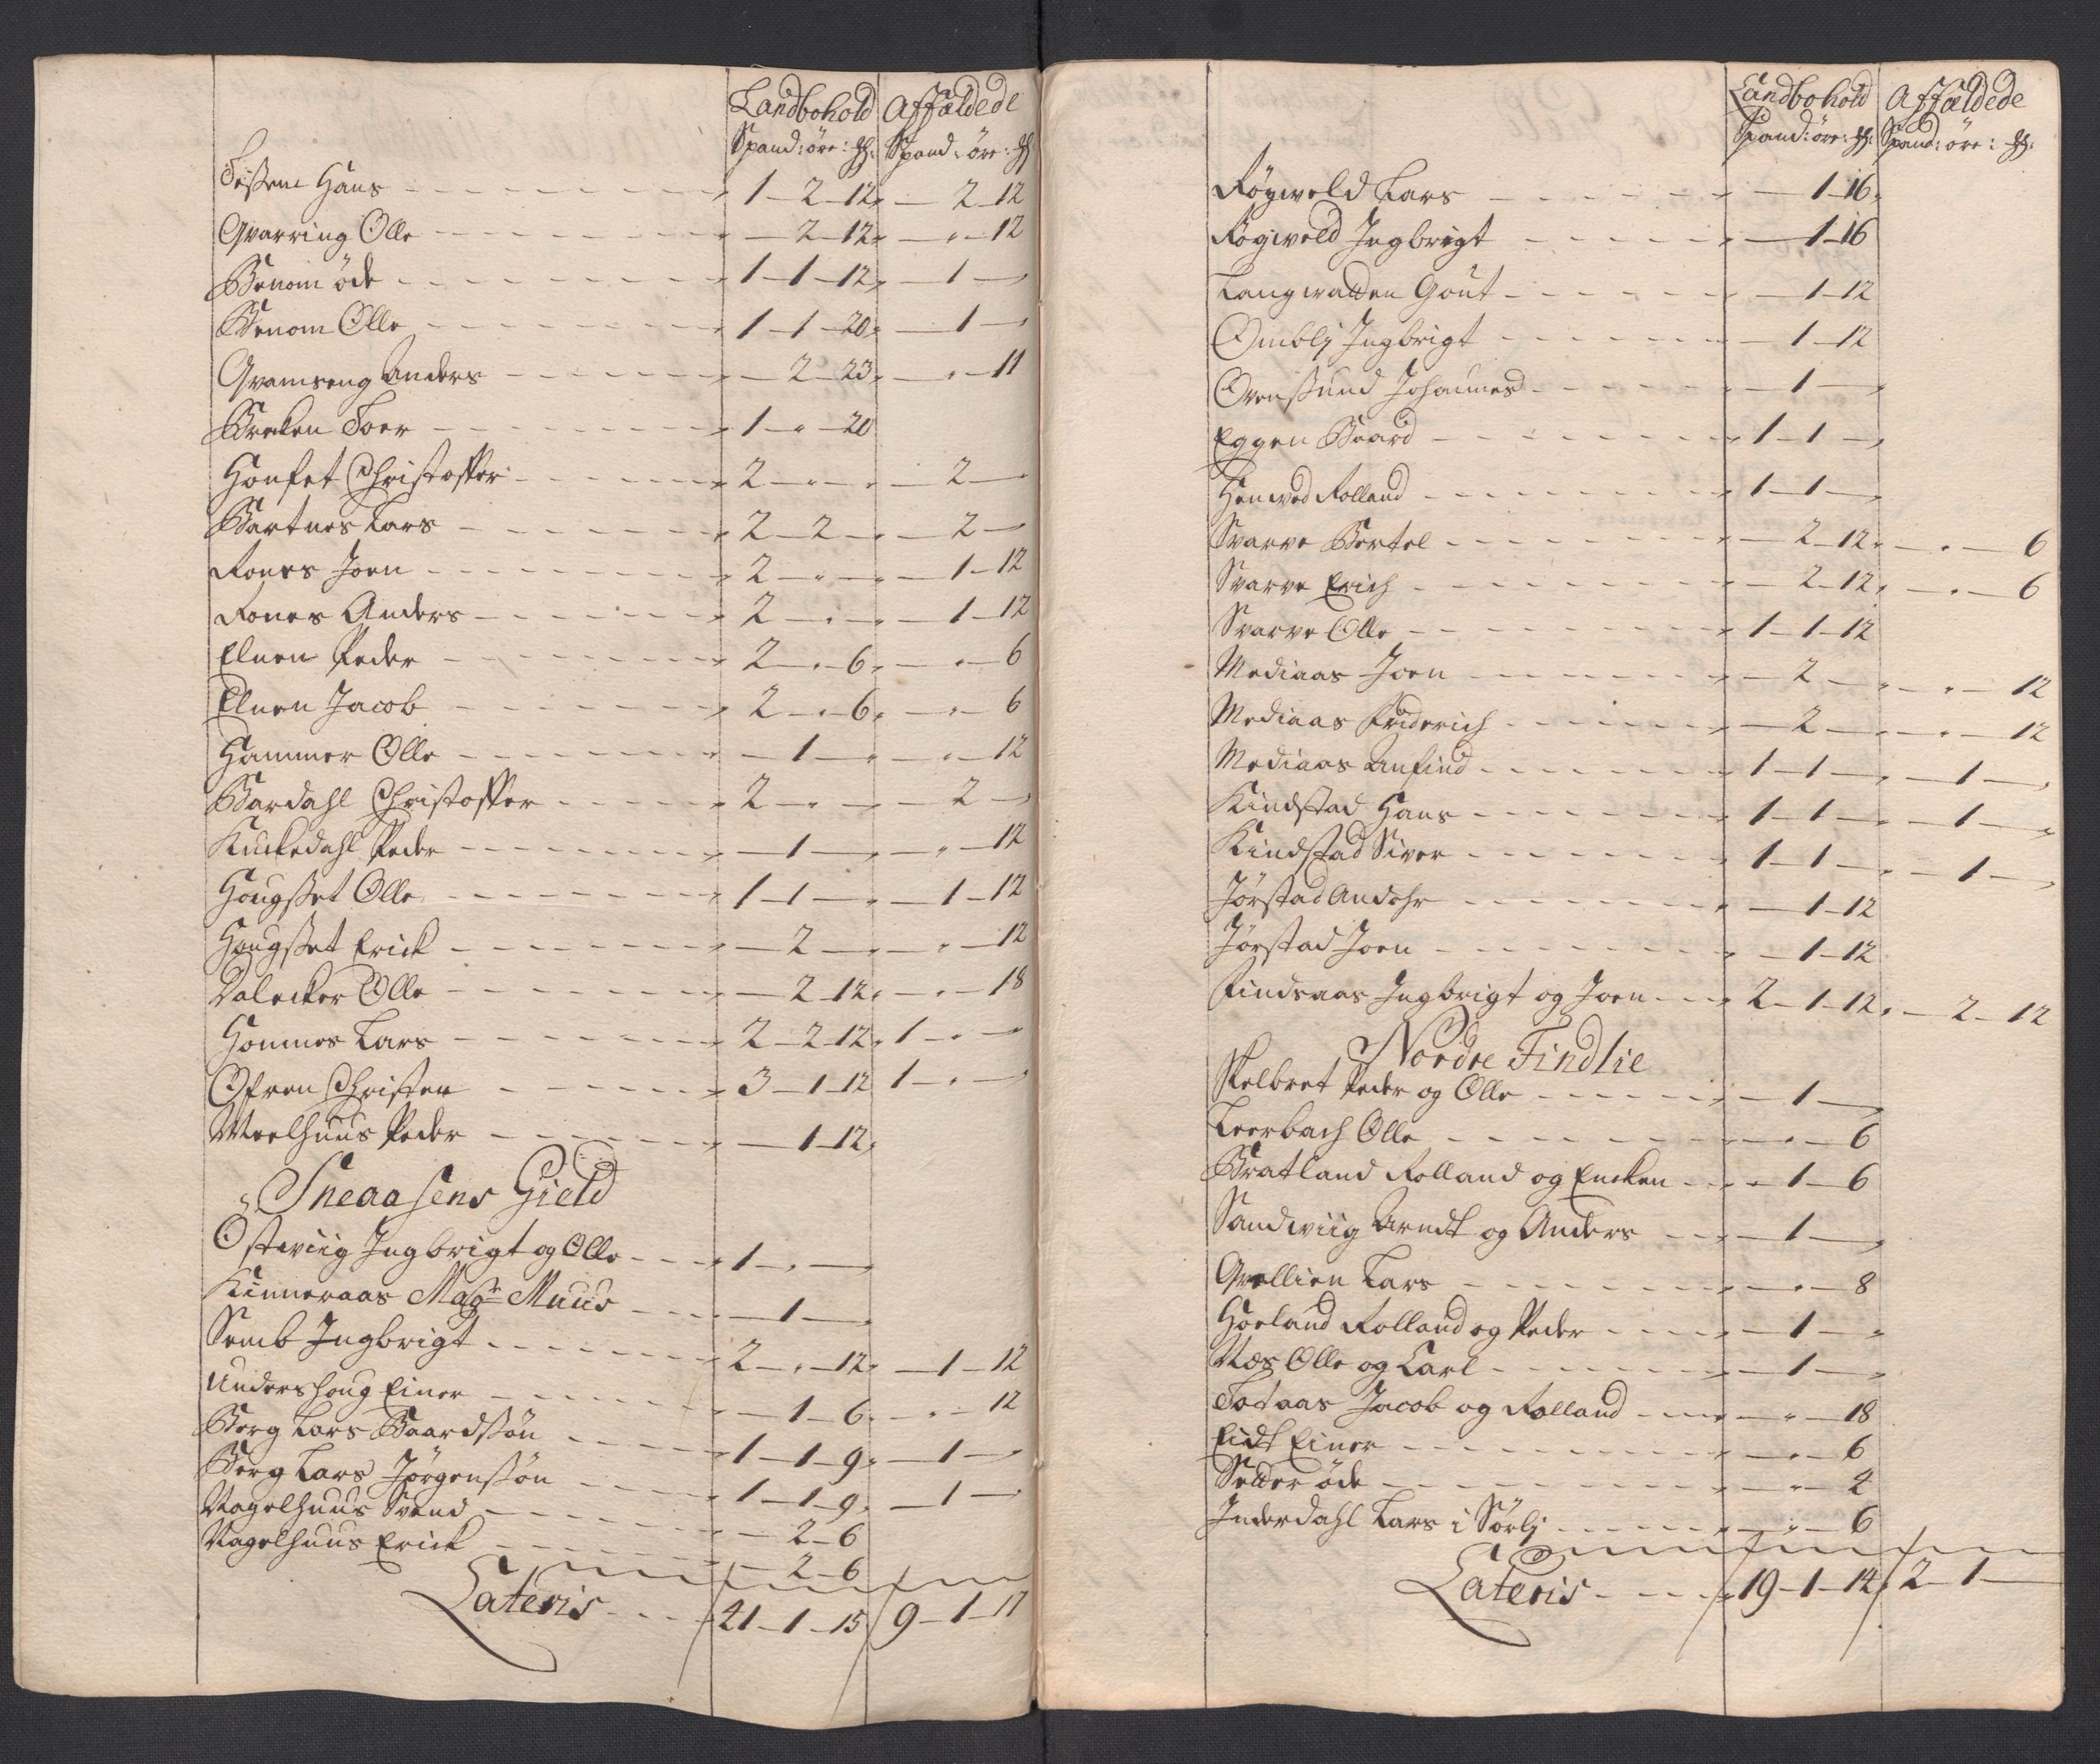 Landbohold Affældede
Spand: öre: ₰: Spand: öre: ₰:
Tessem Hans - - - 1 - 2 - 12, - 2 - 12
Qvarring Olle - - - - 2 - 12, - „ - 12
Benom öde - - - 1 - 1 - 12, - 1 -
Benom Olle - - - 1 - 1 - 20, - 1 -
Qvamseng Anders - - - - 2 - 23, - „ - 11
Brecken Toer - - - 1 - „ - 20
Honset Christoffer - - - 2 - „ - - 2 -
Bartnes Lars - - - 2 - 2 - - 2 -
Rones Joen - - - 2 - „ - - 1 - 12
Rones Anders - - - 2 - „ - - 1 - 12
Elnen Peder - - - 2 - „ - 6, - „ - 6
Elnen Jacob - - - 2 - „ - 6, - „ - 6
Hammer Olle - - - - 1 - - „ - 12
Bardahl Christoffer - - - 2 - „ - - 2 -
Kuckedahl Peder - - - - 1 - - „ - 12
Hougsset Olle - - - 1 - 1 - - 1 - 12
Hougsset Erick - - - - 2 - - „ - 12
Valecker Olle - - - - 2 - 12, - „ - 18
Hommes Lars - - - 2 - 2 - 12, 1 - „ -
Ofren Christen - - - 3 - 1 - 12 1 - „ -
Meelhuus Peder - - - - 1 - 12,
Sneaasens Gield
Ostwiig Ingbrigt og Olle - - - 1 - „ -
Kinneraas Magr Muus - - - - 1 -
Semb Ingbrigt - - - 2 - „ - 12, - 1 - 12
Undershoug Einer - - - - 1 - 6, - „ - 12
Berg Lars Baardssön - - - 1 - 1 - 9, - 1 -
Berg Lars Jörgenssön - - - 1 - 1 - 9, - 1 -
Nagelhuus Svend - - - - 2 - 6
Nagelhuus Erick - - - - 2 - 6
Lateris - - - 41 - 1 - 15 9 - 1 - 17
Landbohold Affældede
Spand: öre: ₰: Spand: öre: ₰:
Røgweld Lars - - - - 1 - 16,
Røgweld Ingbrigt - - - - 1 - 16
Langwatten Gout - - - - 1 - 12
Ombli Ingbrigt - - - - 1 - 12
Ovenssund Johannes - - - - 1 -
Eggen Baard - - - 1 - 1 -
Henwed Rolland - - - 1 - 1 -
Svarve Bertel - - - - 2 - 12, - „ - 6
Svarve Erich - - - - 2 - 12, - „ - 6
Svarve Olle - - - 1 - 1 - 12
Mediaas Joen - - - - 2 - - „ - 12
Mediaas Friderich - - - - 2 - - „ - 12
Mediaas Anfind - - - 1 - 1 - - 1 -
Kindstad Hans - - - 1 - 1 - - 1 -
Kindstad Siver - - - 1 - 1 - - 1 -
Jörstad Andohr - - - - 1 - 12
Jörstad Joen - - - - 1 - 12
Findsaas Ingbrigt og Joen - - - 2 - 1 - 12, - 2 - 12
Nordre Findlie
Skelbret Peder og Olle - - - - 1 -
Leerbach Olle - - - - „ - 6
Bratland Rolland og Encken - - - - 1 - 6
Sandwiig Arndt og Anders - - - - 1 -
Qvellien Lars - - - - „ - 8
Hoeland Rolland og Peder - - - - 1 -
Næs Olle og Carl - - - - 1 -
Totaas Jacob og Rolland - - - - „ - 18
Eidt Einer - - - - „ - 6
Setter öde - - - - „ - 4
Inderdahl Lars i Sörli - - - - „ - 6
Lateris - - - 19 - 1 - 14, 2 - 1 -